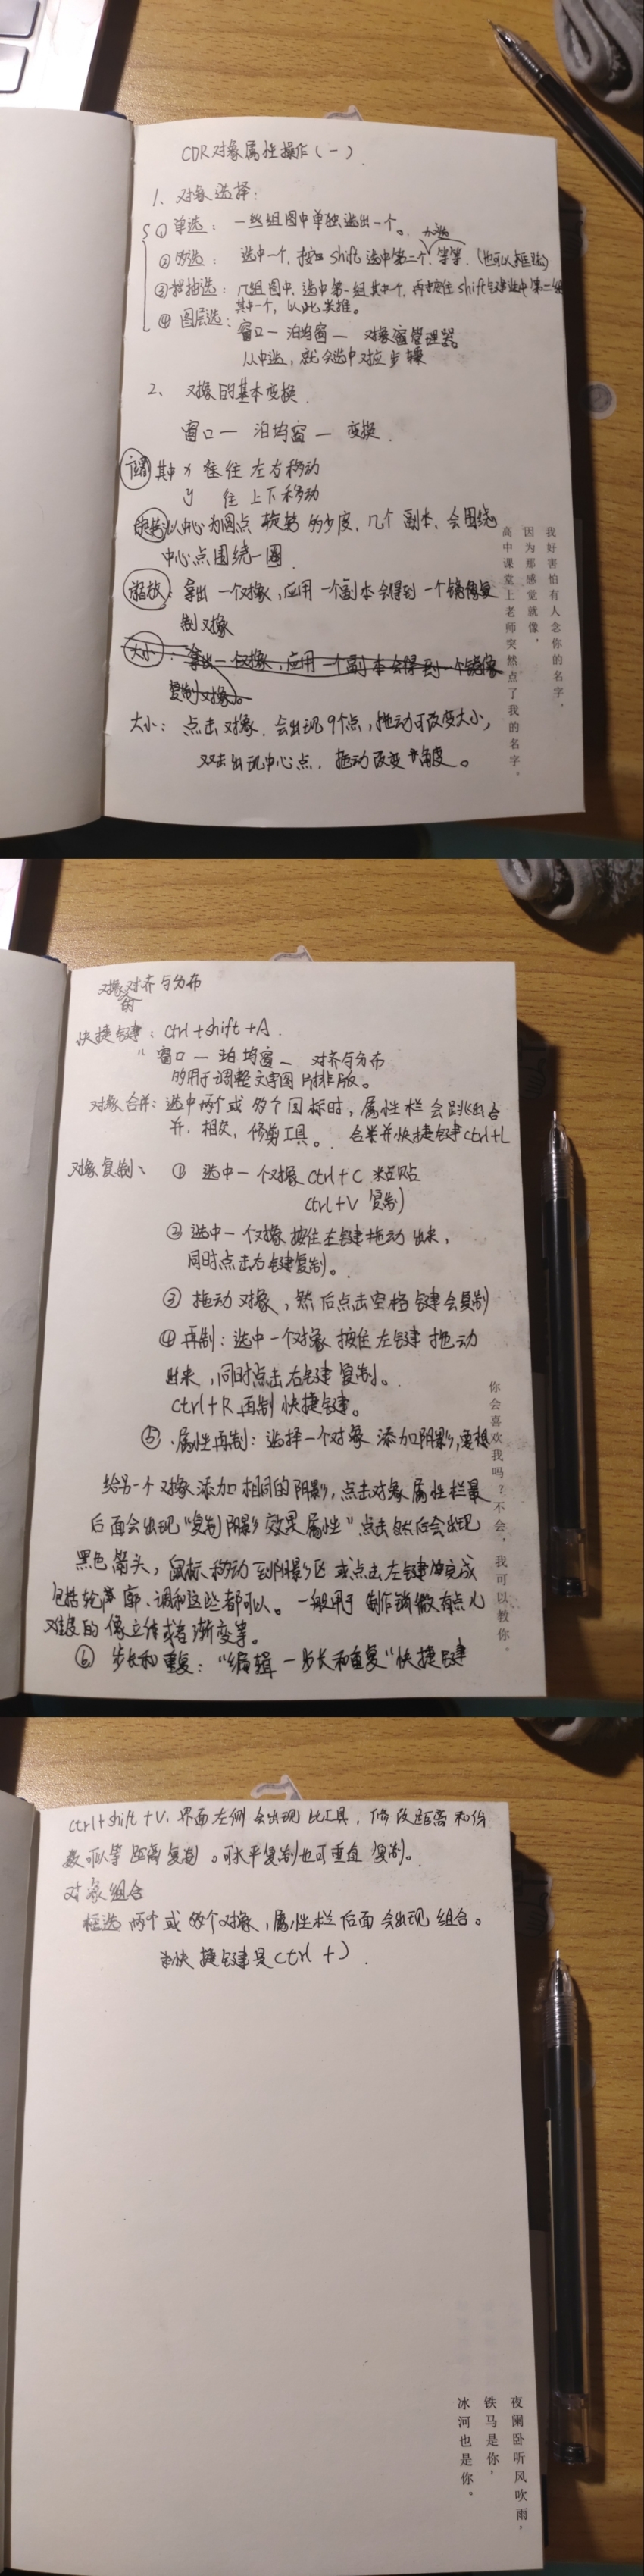 CDR对象属性操作(一)
1、对象选择:
①单选: 一些组图中单独选出一个。
加选
②多选: 选中一个,按 shift 选中第二个,等等.(也可以框选)
③ 选: 几组图中,选中第一组其中一个,再按住 shift 键选中第二组
其中一个,以此类推。
④图层选:
窗口一 泊坞窗一 对象管理器。
从中选,就会选中对应步骤
2、对象的基本变换.
窗口一 泊坞窗一 变换.
位置 其中 x 往 左右移动
y 往 上下移动
旋转 以中心为圆点 旋转 多少度,几个副本,会围绕
中心点围绕一圈
缩放: 拿出一个对象,应用一个副本会得到一个镜像复
制对象
大小: 拿出一个对象,应用一个副本会得到一个镜像
复制对象。
大小: 点击对象,会出现9个点,拖动可改变大小,
双击出现中心点,拖动改变角度。
我好害怕有人念你的名字,
因为那感觉就像,
高中课堂上老师突然点了我的名字。
对象对齐与分布
的
快捷键: ctrl+shift+A.
" 窗口一 泊坞窗一 对齐与分布
多用于调整文字图片排版。
对象合并: 选中两个或多个图标时,属性栏会跳出合
并,相交,修剪工具。 合并快捷键ctrl+L
对象复制: ① 选中一个对象 ctrl+C 粘贴
ctrl+V 复制
②选中一个对象按住左键拖动出来,
同时点击右键复制。
③ 拖动对象,然后点击空格键会复制
④再制: 选中一个对象 按住左键拖动
出来,同时点击右键复制。
ctrl+R 再制快捷键。
⑤、属性再制: 选择一个对象 添加阴影,要想
给另一个对象添加相同的阴影,点击对象属性栏最
后面会出现"复制阴影效果属性"点击然后会出现
黑色箭头,鼠标移动到阴影区 或点击左键 完成
包括轮廓、调和这些都可以。一般用于制作稍微有点儿
难度的像立体或者渐变等。
⑥ 步长和重复: "编辑 一步长和重复"快捷键
你会喜欢我吗?不会,我可以教你。
ctrl+shift+V,界面左侧会出现此工具,修改距离和份
数可以等距离复制。可水平复制也可垂直复制。
对象组合
框选两个或多个对象,属性栏后面会出现组合。
快捷键是ctrl+)
夜阑卧听风吹雨,
铁马是你,
冰河也是你。